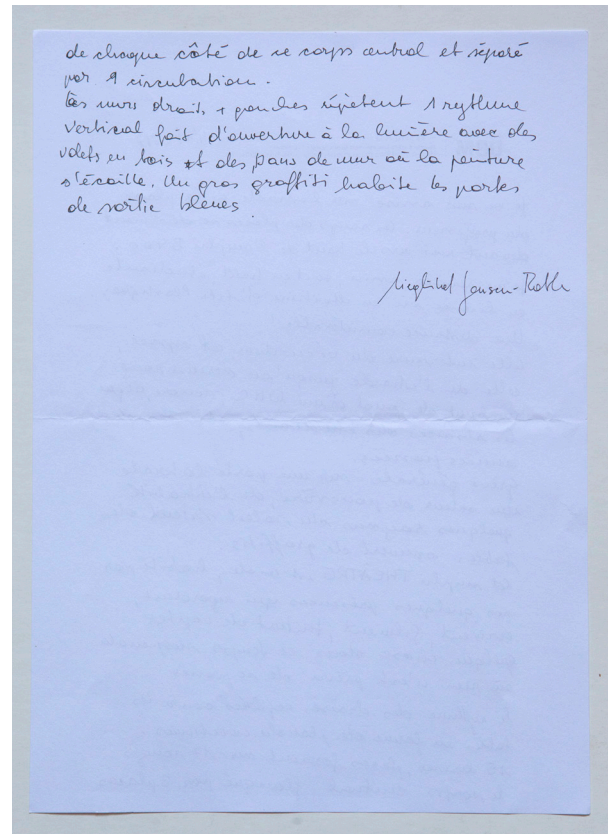 de chaque côté de ce corps central et séparé
par 1 circulation.
Les murs droits + gauches répètent 1 rythme
vertical fait d'ouverture à la lumière avec des
volets en bois et des pans de mur où la peinture
s'écaille. Un gros graffiti habite les portes
de sortie bleues.
Jansen-Roth